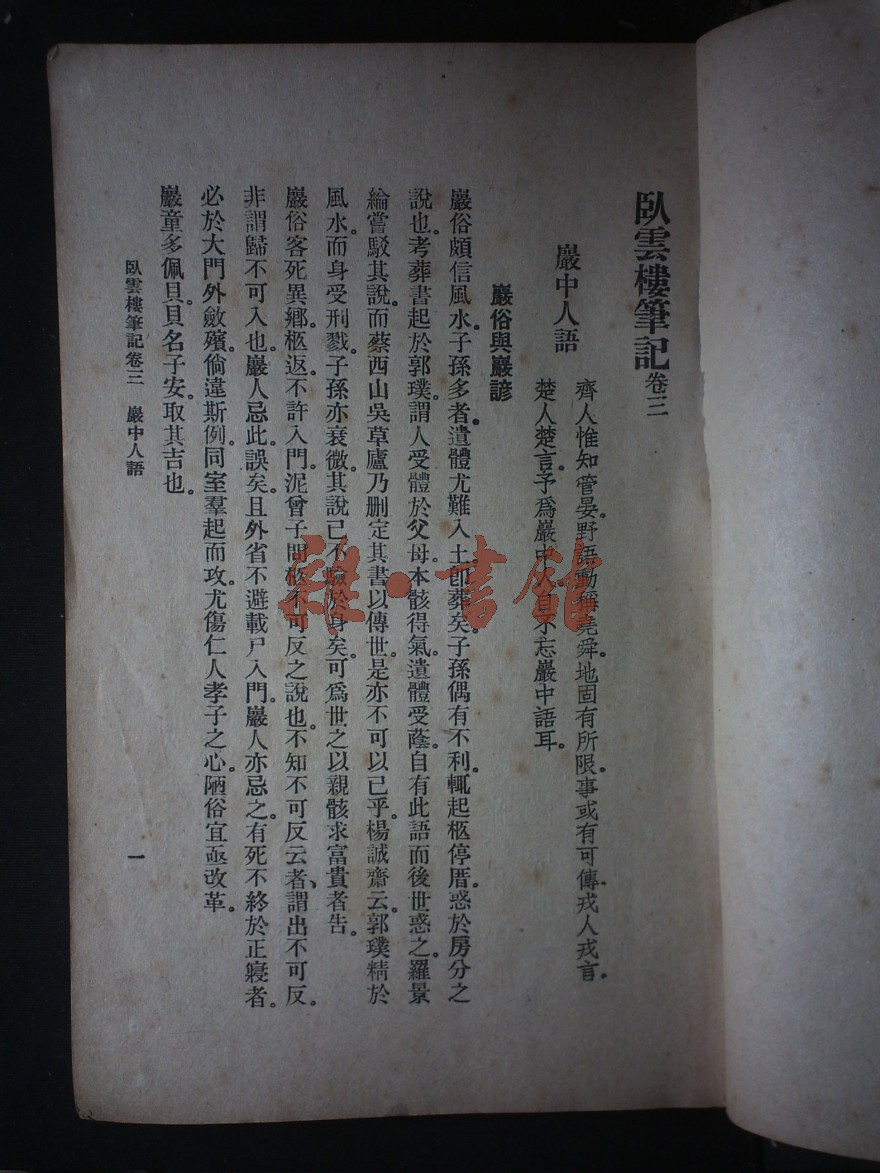 臥雲樓筆記卷三
巖中人語
齊人惟知管晏。野語動稱堯舜。地固有所限。事或有可傳。戎人戎言。
楚人楚言。予爲巖中人。自不忘巖中語耳。
巖俗與巖諺
巖俗頗信風水。子孫多者。遺體尤難入土。卽葬矣。子孫偶有不利。輒起柩停厝。惑於房分之
說也。考葬書起於郭璞。謂人受體於父母。本骸得氣。遺體受蔭。自有此語而後世惑之。羅景
綸嘗駁其說。而蔡西山吳草廬乃刪定其書以傳世。是亦不可以已乎。楊誠齋云。郭璞精於
風水。而身受刑戮。子孫亦衰微。其說已不驗於身矣。可爲世之以親骸求富貴者告。
巖俗客死異鄉。柩返不許入門。泥曾子問柩不可反之說也。不知不可反云者、謂出不可反。
非謂歸不可入也。巖人忌此。誤矣。且外省不避載尸入門。巖人亦忌之。有死不終於正寢者。
必於大門外斂殯。倘違斯例。同室羣起而攻。尤傷仁人孝子之心。陋俗宜亟改革。
巖童多佩貝。貝名子安。取其吉也。
臥雲樓筆記卷三　巖中人語　一
雜·書館